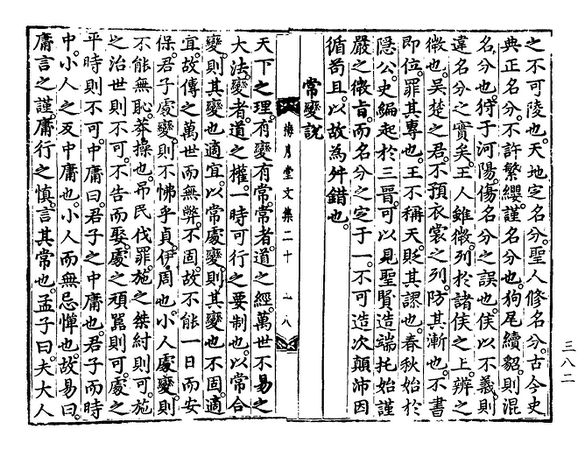 之不可陵也。天地定名分。聖人修名分。古今史
典正名分。不許繁纓。謹名分也。狗尾續貂。則混
名分也。狩于河陽。傷名分之誤也。侯以不義。則
違名分之實矣。王人雖微。列於諸侯之上。辨之
徵也。吳楚之君。不預衣裳之列。防其漸也。不書
即位。罪其專也。王不稱天。貶其謬也。春秋始於
隱公。史編起於三晉。可以見聖賢造端托始。謹
嚴之微旨。而名分之定于一。不可造次顚沛因
循苟且。以故為舛錯也。
常變說
梅月堂文集二十 一八
天下之理。有變有常。常者。道之經。萬世不易之
大法。變者。道之權。一時可行之要制也。以常合
變。則其變也適宜。以常處變。則其變也不固。適
宜。故傳之萬世而無弊。不固。故不能一日而安
保。君子處變。則不怫乎貞。伊周也。小人處變。則
不能無恥。莽操也。吊民伐罪。施之桀紂則可。施
之治世則不可。不告而娶。處之頑嚚則可。處之
平時則不可。中庸曰。君子之中庸也。君子而時
中。小人之反中庸也。小人而無忌憚也。故易曰。
庸言之謹。庸行之慎。言其常也。孟子曰。夫大人
三八二